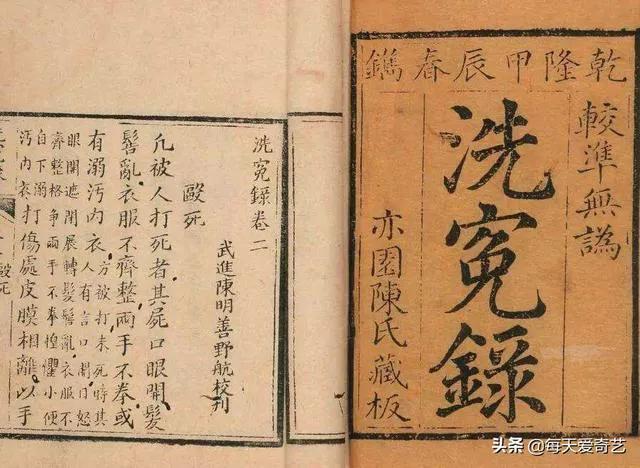 乾隆甲辰春鐫
較準無譌
洗冤錄
亦園陳氏藏板
洗冤錄卷二
武進陳明善野航校刊
毆死
凢被人打死者其屍口眼開髮
髻亂衣服不齊整兩手不拳或
有溺汚內衣
方被打未死時其
人有言口開目怒
眼開遮閉展轉髮髻亂衣服不
齊整格爭兩手不拳惶懼小便
自下溺
汚內衣
打傷處皮膜相離以手
毆死
头条 @每天爱奇艺